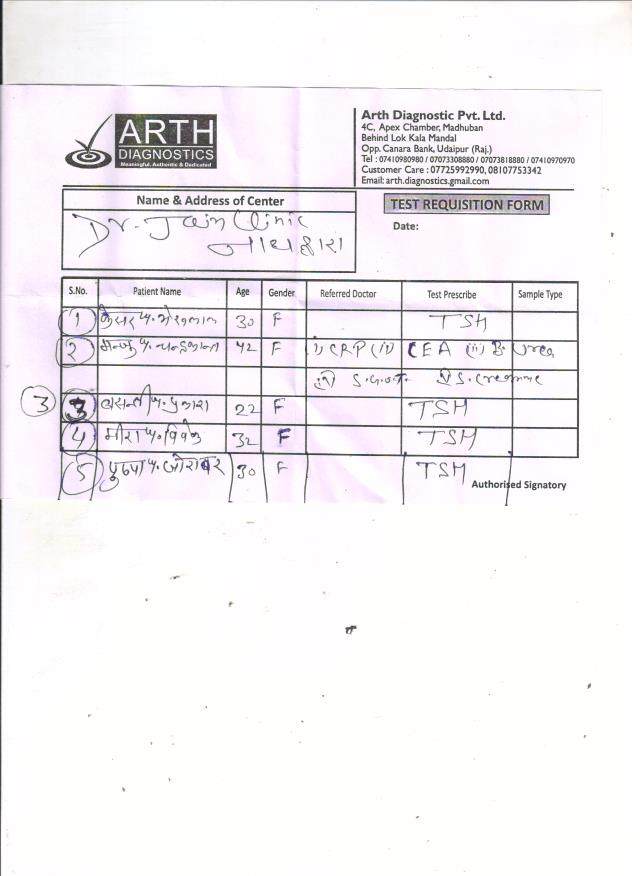 ARTH
DIAGNOSTICS
Meaningful, Authentic & Dedicated
Arth Diagnostic Pvt. Ltd.
4C, Apex Chamber, Madhuban
Behind Lok Kala Mandal
Opp. Canara Bank, Udaipur (Raj.)
Tel : 07410980980 / 07073308880 / 07073818880 / 07410970970
Customer Care : 07725992990, 08107753342
Email: arth.diagnostics.gmail.com
Name & Address of Center
TEST REQUISITION FORM
Dr. Jain Clinic
नाथद्वारा
Date:
S.No. Patient Name Age Gender Referred Doctor Test Prescribe Sample Type
1 30 F TSH
2 42 F i) CRP (ii) CEA (iii) B. Urea
S.G.O.T. S.
3 3 प्रकाश 22 F TSH
4 मीरा प. विवेक 32 F TSH
5 30 F TSH
Authorised Signatory